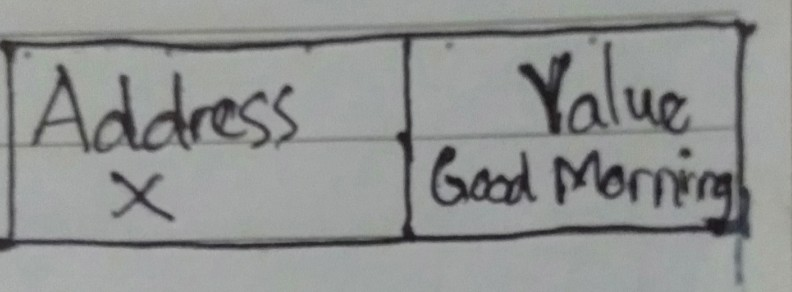 Address Value
X Good Morning